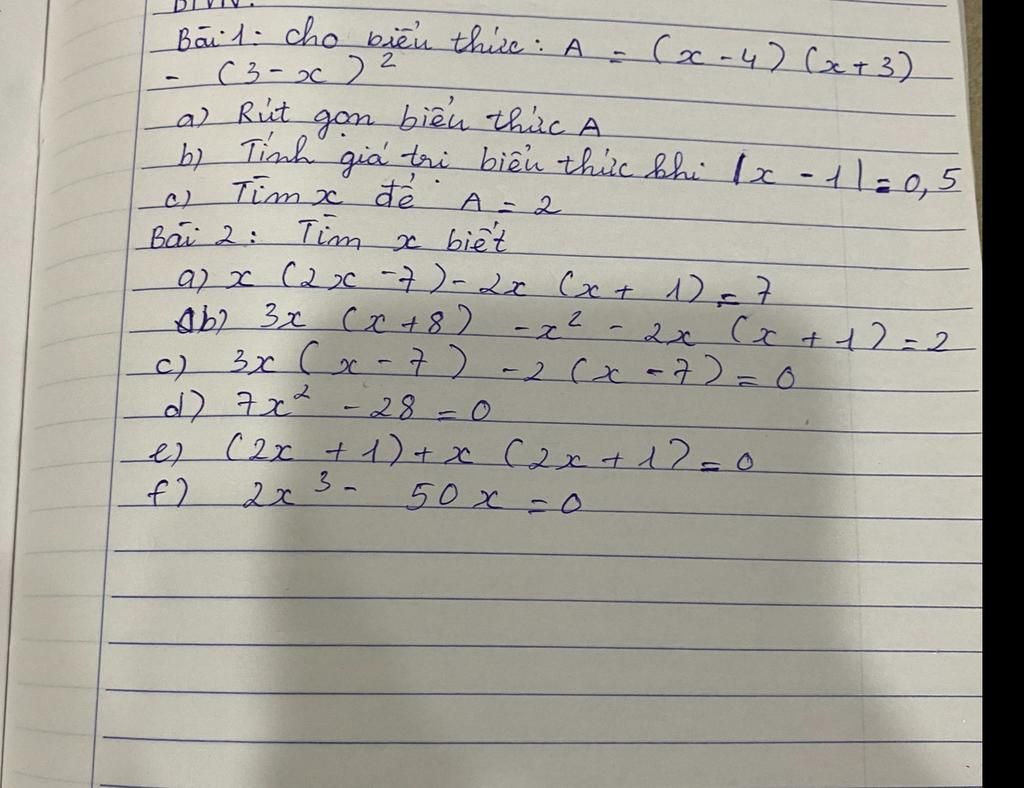 BTVN:
Bài 1: Cho biểu thức: A = (x - 4) (x + 3)
- (3 - x)²
a) Rút gọn biểu thức A
b) Tính giá trị biểu thức khi |x - 1| = 0,5
c) Tìm x để A = 2
Bài 2: Tìm x biết
a) x (2x - 7) - 2x (x + 1) = 7
b) 3x (x + 8) - x² - 2x (x + 1) = 2
c) 3x (x - 7) - 2 (x - 7) = 0
d) 7x² - 28 = 0
e) (2x + 1) + x (2x + 1) = 0
f) 2x³ - 50x = 0